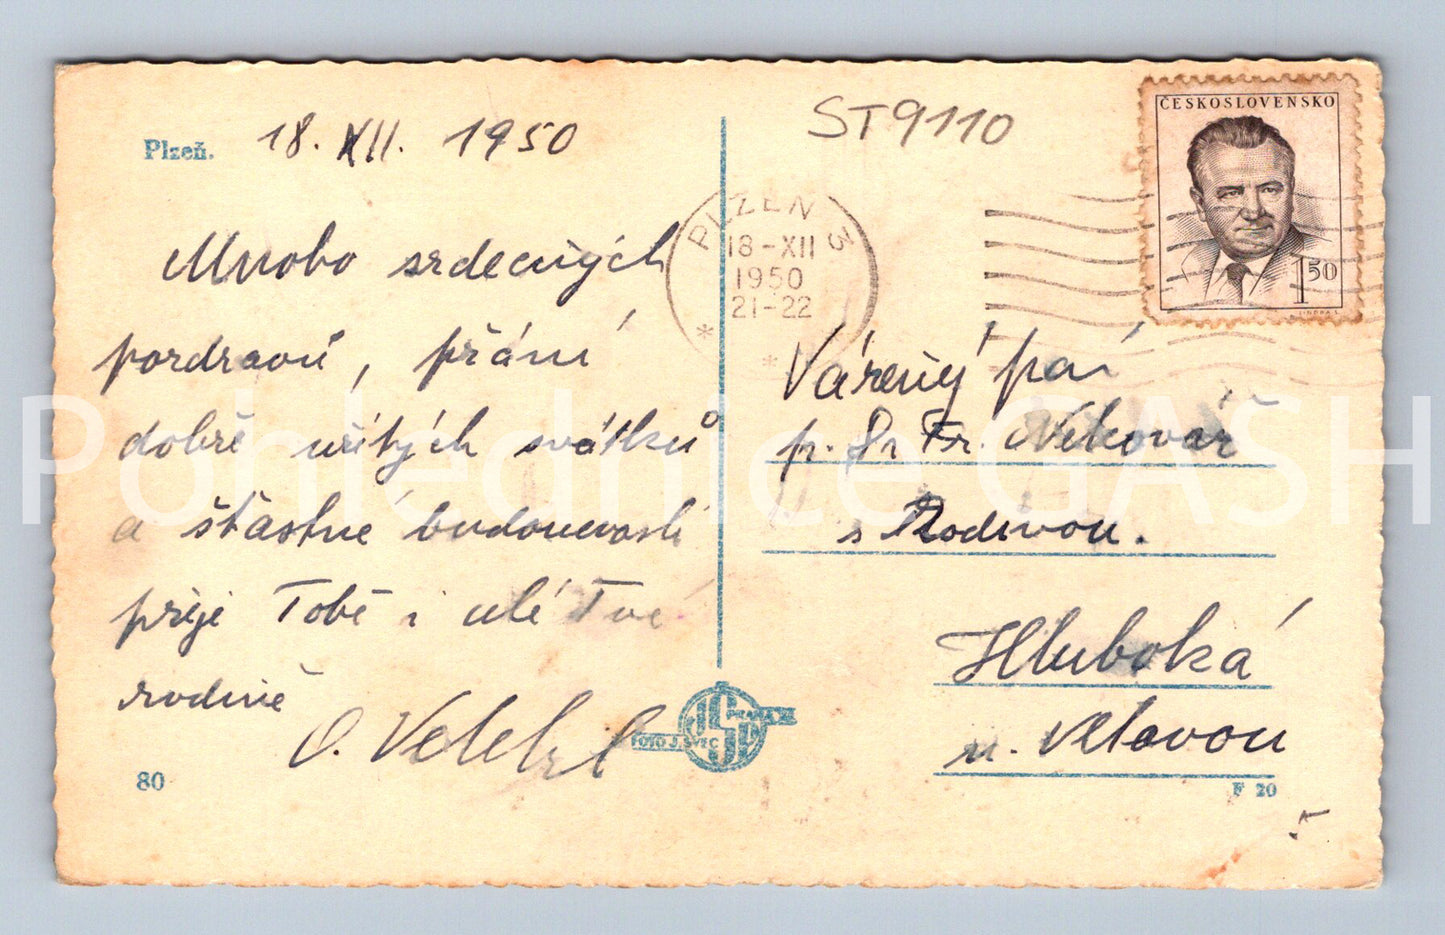 Plzeň. 18. XII. 1950
Mnoho srdečných
pozdravů, přání
dobře užitých svátků
a šťastné budoucnosti
přeje Tobě i celé Tvé
rodině
O.
80
ST9110
PLZEŇ 3
18-XII
1950
21-22
ČESKOSLOVENSKO
1 50
JINDRA S.
Vážený pan
p. Fr. Nekovář
s Rodinou.
Hluboká
n. Vltavou
FOTO J. ŠVEC PRAHA
F 20
Pohlednice GASH